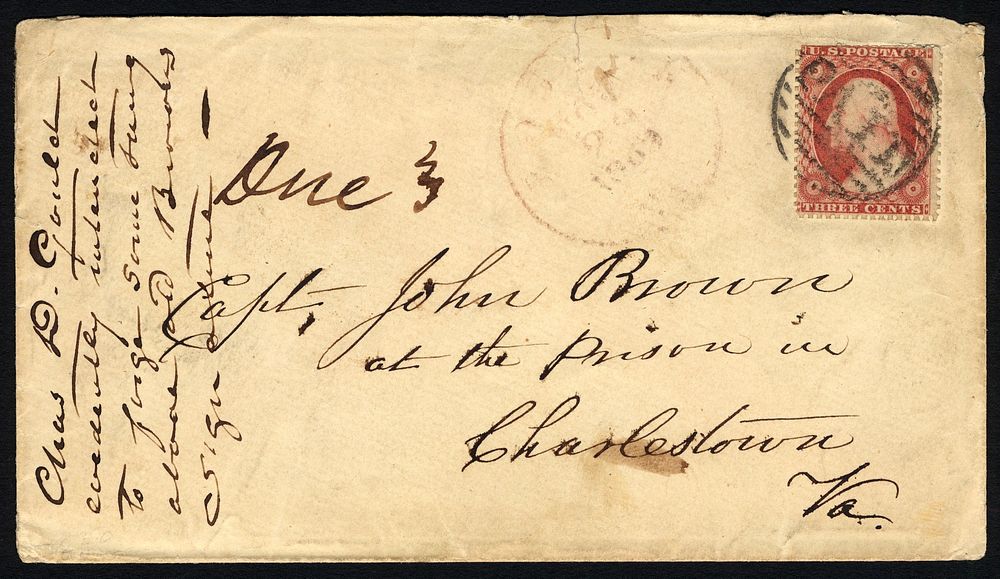 Chas D. Gould
evidently intended
to forge some thing
above Old Browns
Signature
Due 3
U.S. POSTAGE
THREE CENTS
Capt, John Brown
at the Prison in
Charlestown
Va.